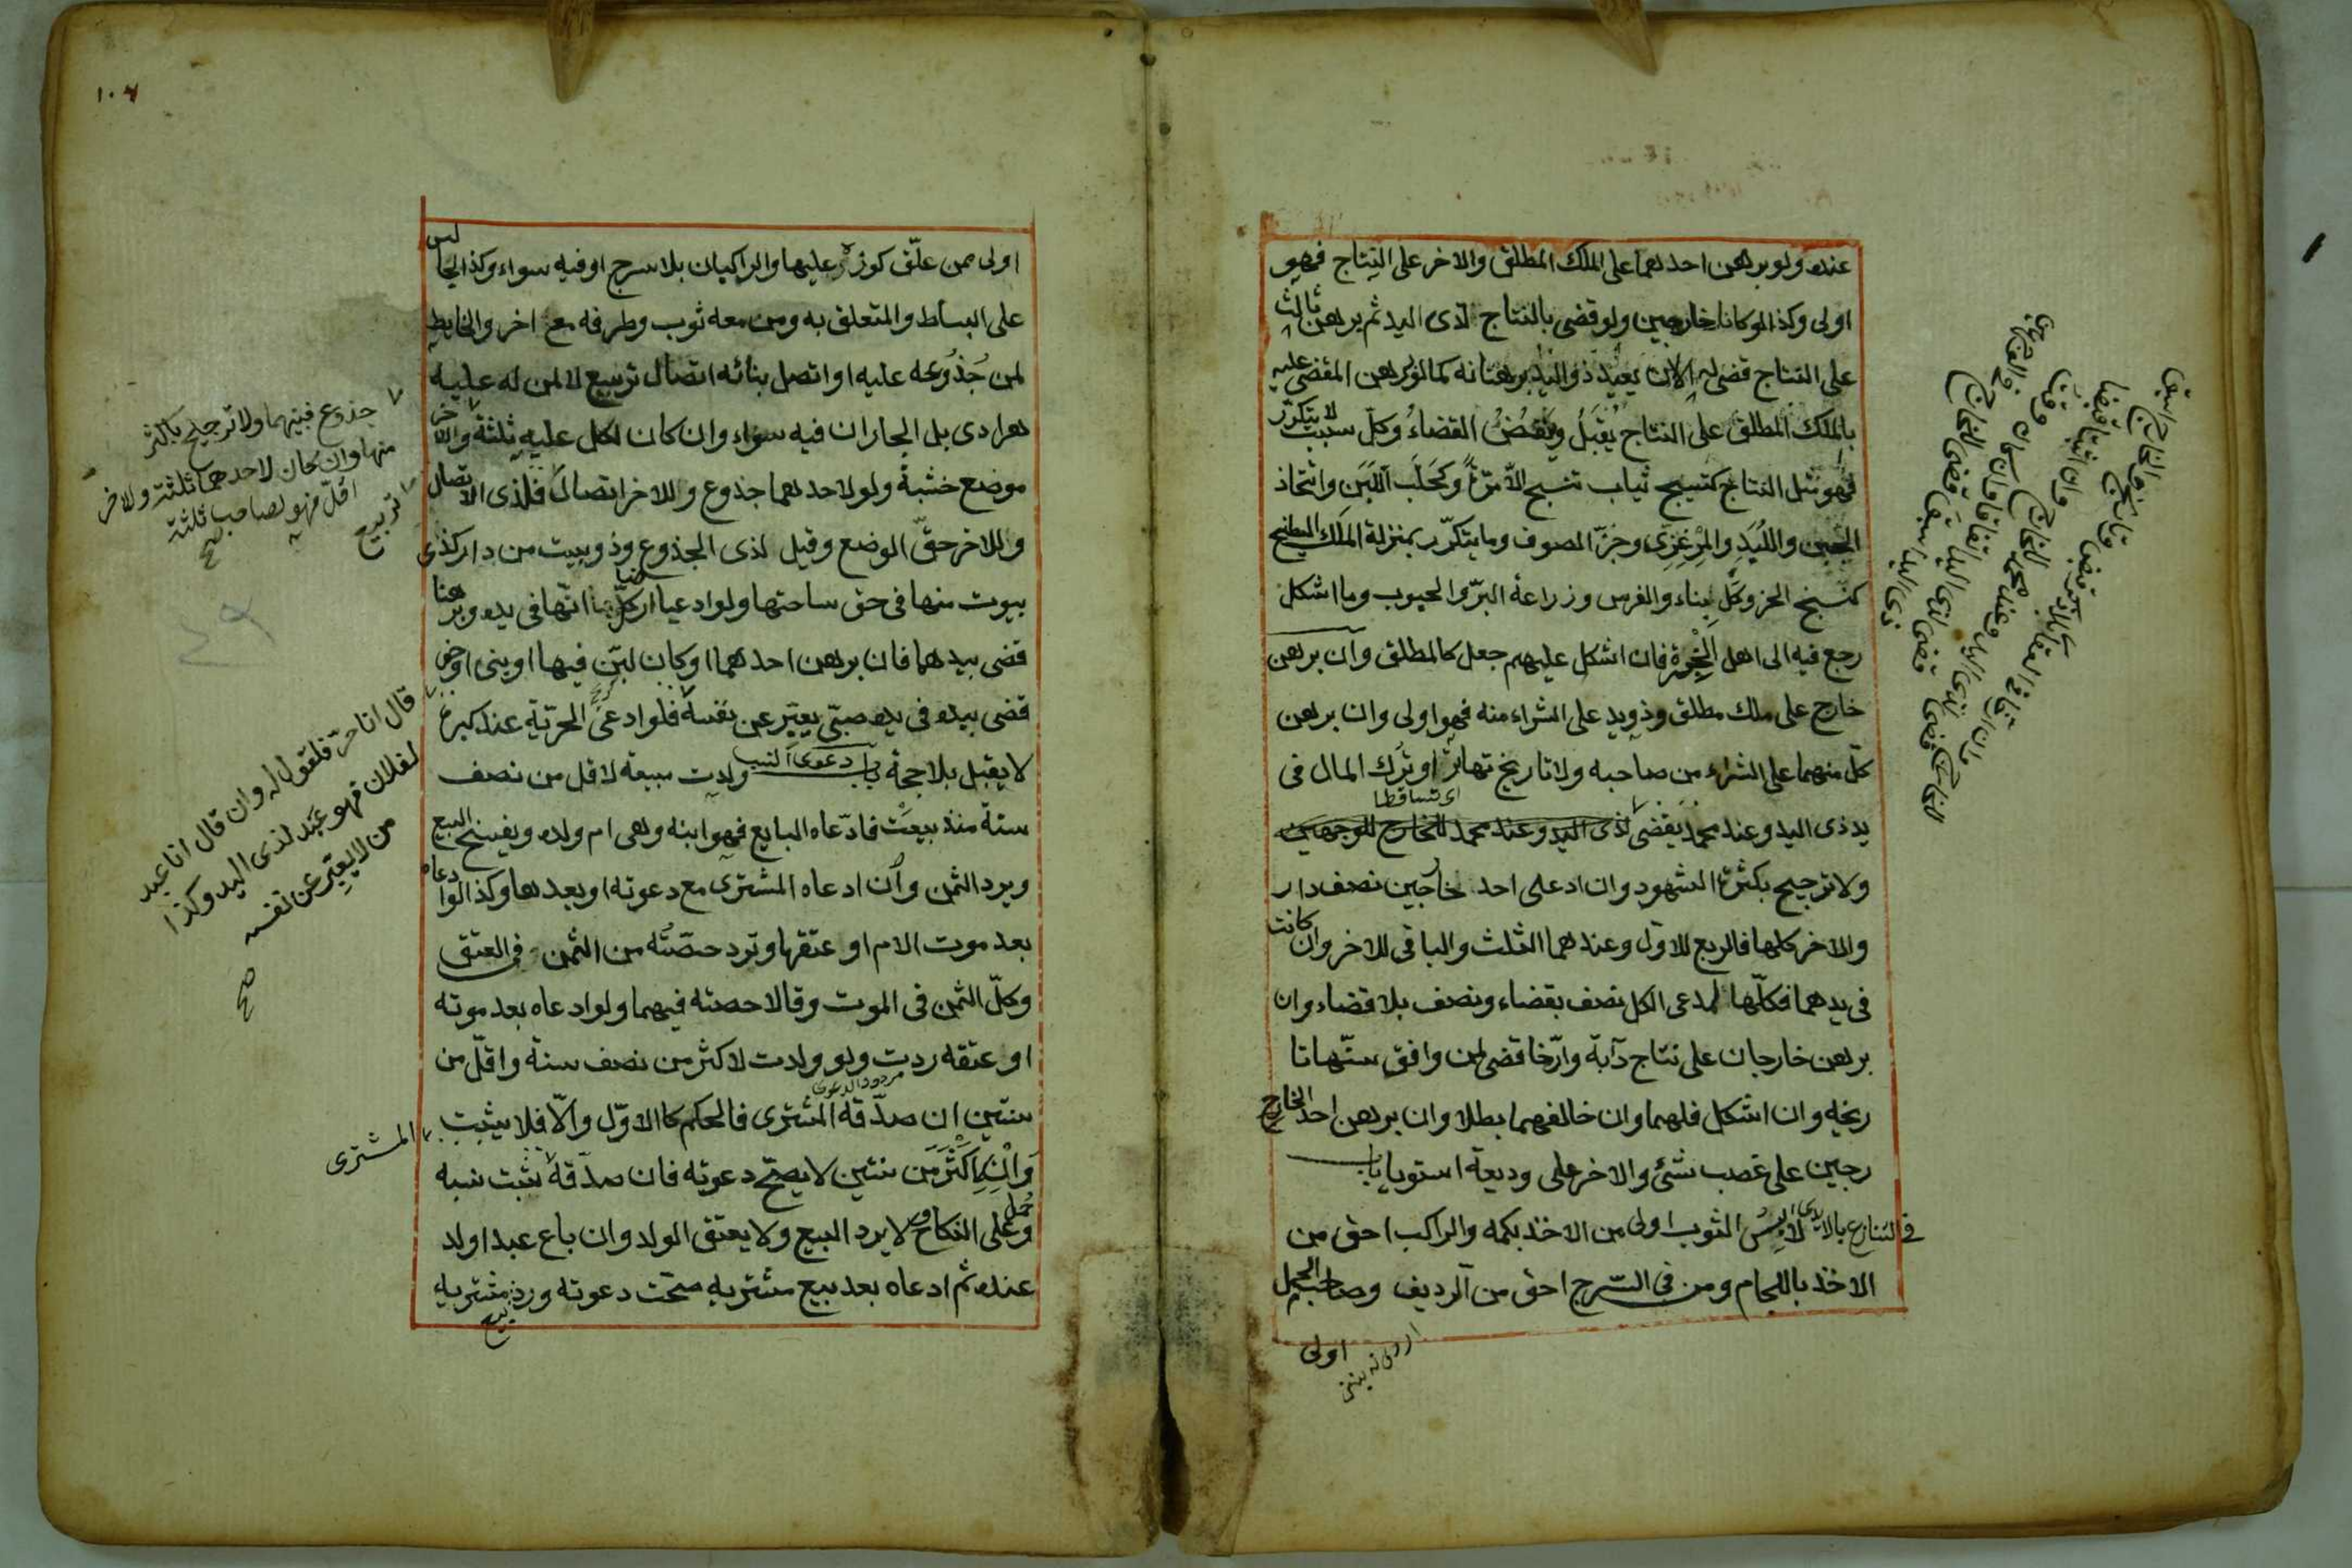 عنده ولو برهن احدهما على الملك المطلق والاخر على النتاج فهو
اولى وكذا لو كانا خارجين ولو قضى بالنتاج لذى اليد ثم برهن ثالث
على النتاج قضى له الا ان يعيد ذو اليد برهانه كما لو برهن المقضى عليه
بالملك المطلق على النتاج يقبل وينقض القضاء وكل سبب لا يتكرر
فهو مثل النتاج كنسيج ثياب تنسج الا مرة وكحلب اللبن واتخاذ
الجبن واللبد والمرعزى وجز الصوف وما يتكرر بمنزلة الملك المطلق
كنسج الخز وكل بناء والغرس وزراعة البر والحبوب وما اشكل
رجع فيه الى اهل الخبرة فان اشكل عليهم جعل كالمطلق وان برهن
خارج على ملك مطلق وذو يد على الشراء منه فهو اولى وان برهن
كل منهما على الشراء من صاحبه ولا تاريخ تهاترا وترك المال فى
اى تساقطا
يد ذى اليد وعند محمد يقضى لذى اليد وعند محمد للخارج للوجهين
ولا ترجيح بكثرة الشهود وان ادعى احد خارجين نصف دار
والاخر كلها فالربع للاول وعندهما الثلث والباقى للاخر وان كانت
فى يدهما فكلها لمدعى الكل نصف بقضاء ونصف بلا قضاء وان
برهن خارجان على نتاج دابة وارخا قضى لمن وافق سنها تا
ريخه وان اشكل فلهما وان خالفهما بطلا وان برهن احد الخارج
رجين على غصب شئ والاخر على وديعة استويا باب
فى التنازع بالايدى لابس الثوب اولى من الاخذ بكمه والراكب احق من
الاخذ باللجام ومن فى السرج احق من الرديف وصاحب الحمل
اولى
١٠٤
اولى ممن علق كوزه عليها والراكبان بلا سرج او فيه سواء وكذا الجالس
على البساط والمتعلق به ومن معه ثوب وطرفه مع اخر والحايط
لمن جذوعه عليه او اتصل ببنائه اتصال تربيع لا لمن له عليه
هرادى بل الجاران فيه سواء وان كان لكل عليه ثلثة والاخر
موضع خشبة ولو لاحدهما جذوع وللاخر اتصال فلذى الاتصال
وللاخر حق الوضع وقيل لذى الجذوع وذو بيت من دار كذى
بيوت منها فى حق ساحتها ولو ادعيا ارضا كل انها فى يده وبرهنا
قضى بيدهما فان برهن احدهما او كان لبن فيها او بنى او حفر
قضى بيده فى يده صبى يعبر عن نفسه فلو ادعى الحرية عند كبره
لا يقبل بلا حجة باب دعوى النسب ولدت مبيعة لاقل من نصف
سنة منذ بيعت فادعاه البايع فهو ابنه وهى ام ولده ويفسخ البيع
ويرد الثمن وان ادعاه المشترى مع دعوته او بعدها وكذا لو ادعاه
بعد موت الام او عتقها وترد حصته من الثمن فى العتق
وكل الثمن فى الموت وقالا حصته فيهما ولو ادعاه بعد موته
او عتقه ردت ولو ولدت لاكثر من نصف سنة واقل من
مردود الدعوى
سنتين ان صدقه المشترى فالحكم كالاول والا فلا يثبت
وان لاكثر من سنتين لا يصح دعوته فان صدقه ثبت نسبه
وحمل على النكاح ولا يرد البيع ولا يعتق الولد وان باع عبدا ولد
عنده ثم ادعاه بعد بيع مشتريه صحت دعوته ورد بيع مشتريه
جذوع فبينهما ولا ترجيح باكثر
منها وان كان لاحدهما ثلثة وللاخر
اقل فهو لصاحب ثلثة
صح
تربيع
قال انا حر فالقول له وان قال انا عبد
لفلان فهو عبد لذى اليد وكذا
من لا يعبر عن نفسه
صح
المشترى